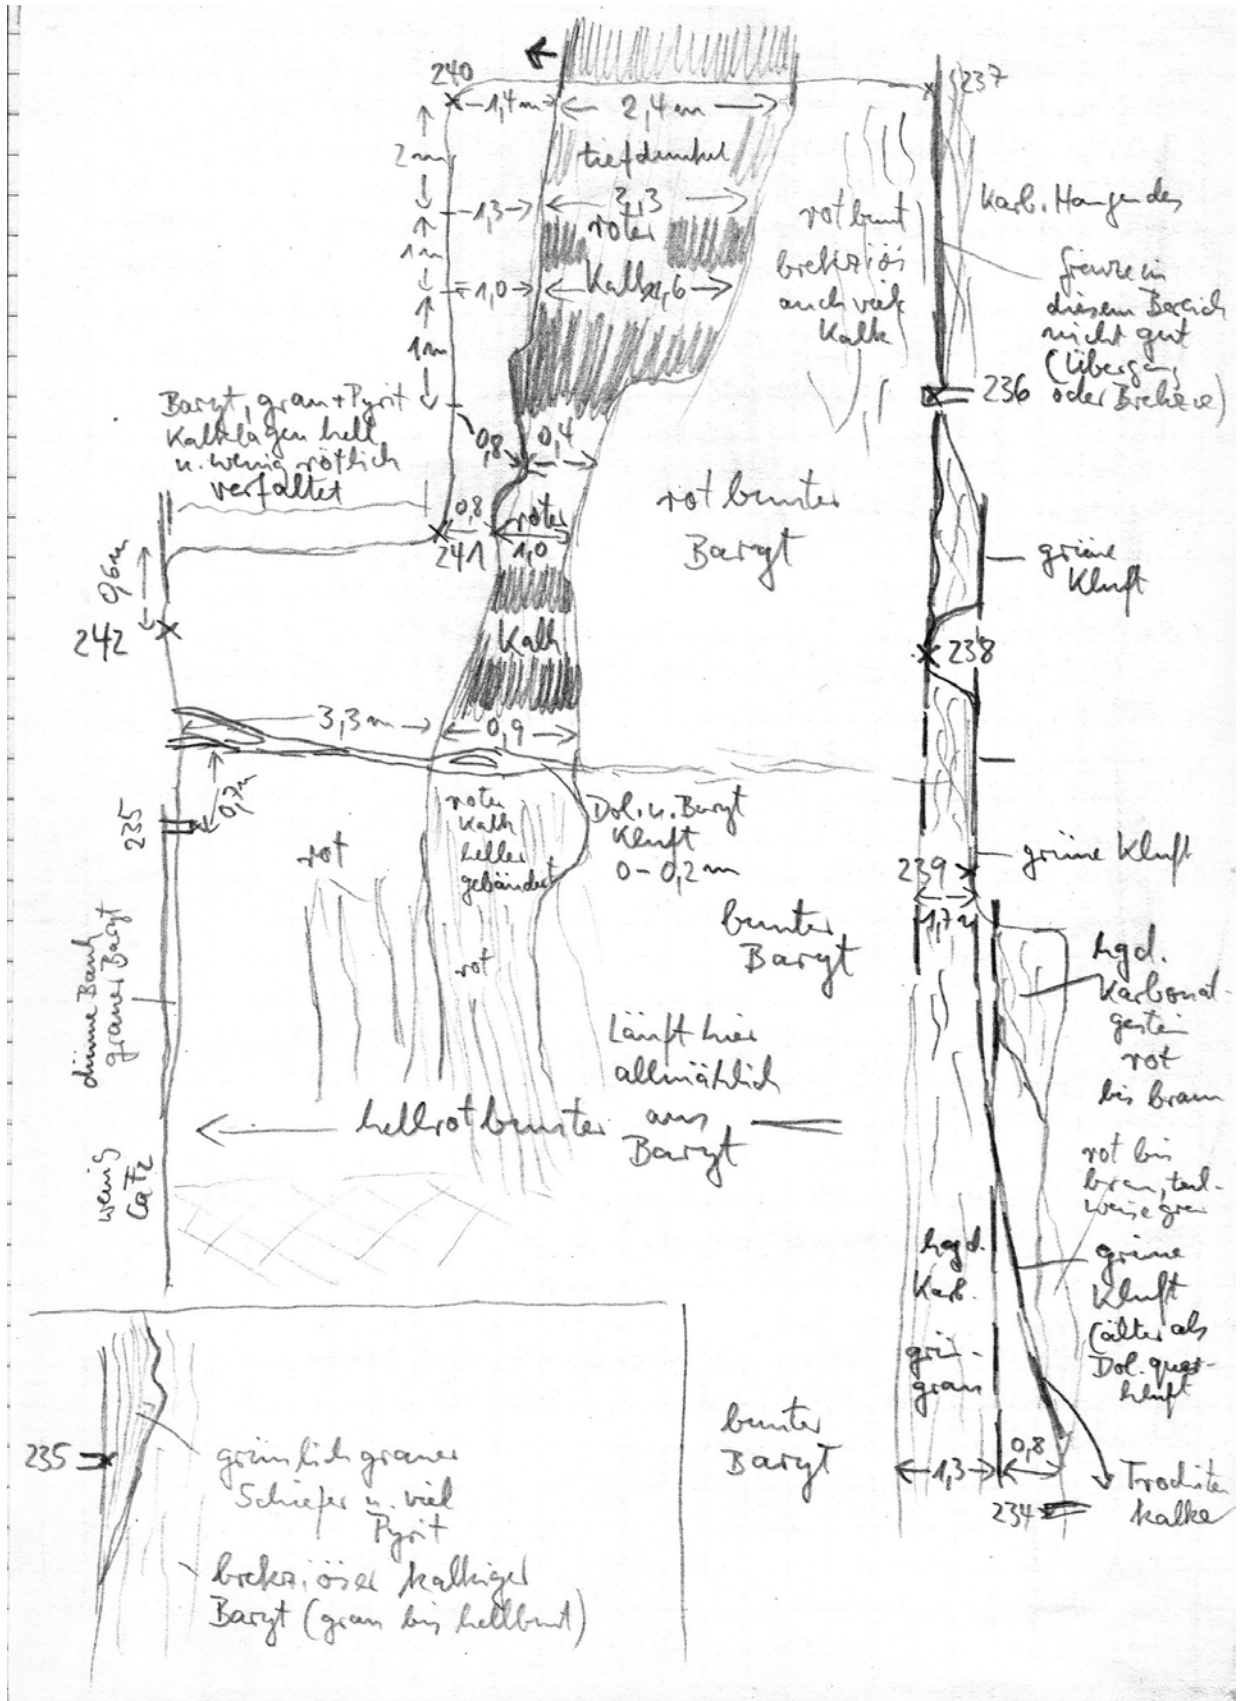 240
237
1,4 m
2,4 m
2 m
tiefdunkel
1,3
2,3
roter
1 m
1,0
Kalk
1,6
1 m
rot bunt
brekziös
auch viel
Kalk
Karb. Hangendes
Grenze in
diesem Bereich
nicht gut
(Übergang
oder Brekzie)
236
Baryt, grau + Pyrit
Kalklagen hell
u. wenig rötlich
verfaltet
0,8
0,4
0,8
roter
241
1,0
rot bunter
Baryt
grüne
Kluft
0,6 m
242
Kalk
238
3,3 m
0,9
0,7 m
235
rot
roter
Kalk
heller
gebändert
Dol. u. Baryt
Kluft
0 - 0,2 m
grüne Kluft
239
1,7 m
bunter
Baryt
rot
dünne Bank
grauer Baryt
hgd.
Karbonat-
gestein
rot
bis braun
Läuft hier
allmählich
aus
hellrot bunter
Baryt
wenig
CaF2
rot bis
braun, teil-
weise grau
hgd.
Karb.
grün-
grau
grüne
Kluft
(älter als
Dol. quer-
kluft
bunter
Baryt
0,8
1,3
234
Trochiten
kalke
235
grünlich grauer
Schiefer u. viel
Pyrit
brekziöser kalkiger
Baryt (grau bis hellbunt)